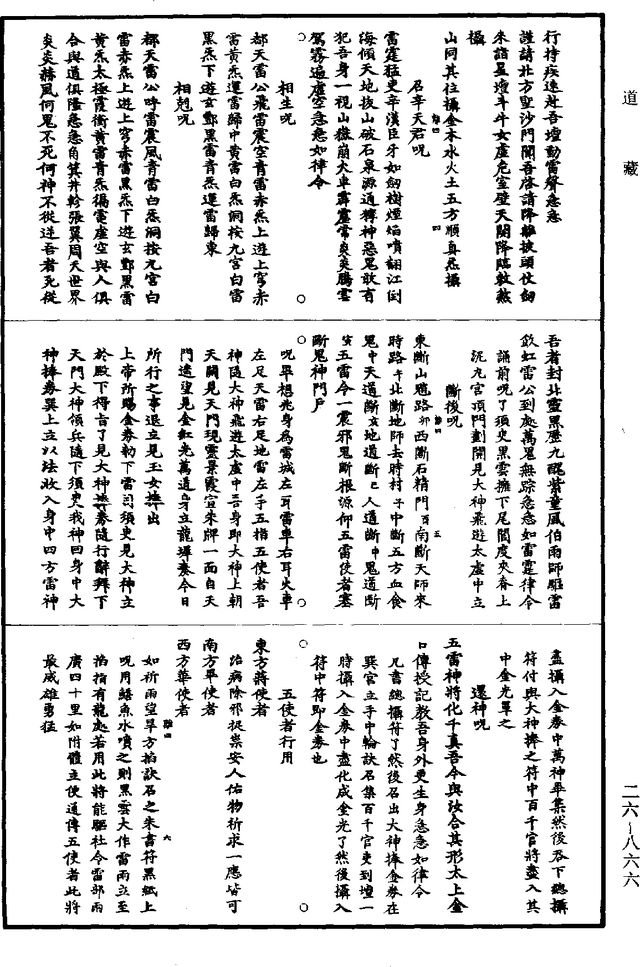 道藏
行持疾速赴吾壇動雷聲急急
謹請北方聖沙門開吾啓請降離披頭仗劍
來詣星壇斗牛女虛危室壁天關降臨敕煞
攝
山同其位攝金木水火土五方順真炁攝
召辛天君呪
雷霆猛吏辛漢臣牙如劍樹煙焰噴翻江倒
海傾天地拔山破石泉源通轉神惡鬼敢有
犯吾身一視山嶽崩火車霹靂常炎炎騰雲
駕霧遍虛空急急如律令
相生呪
都天雷公飛雷震空青雷赤炁上遊上穹赤
雷黃炁運雷歸中黃雷白炁洞按九宮白雷
黑炁下遊玄酆黑雷青炁運雷歸東
相剋呪
都天雷公呼雷震風青雷白炁洞按九宮白
雷赤炁上遊上穹赤雷黑炁下遊玄酆黑雷
黃炁太極霞衝黃雷青炁揚電虛空與人俱
合與道俱隆急急角箕井軫張翼周天世界
炎炎赫風何鬼不死何神不從逆吾者死從
吾者封北靈黑歷九醜紫童風伯雨師驅雷
飲虹雷公到處萬鬼無踪急急如雷霆律令
誦前呪了須臾黑雲擁下尾閭度夾脊上
沉九宮頂門劃開見大神飛遊太虛中立
斷後呪
東斷山魈路卯西斷石精門酉南斷天師來
時路午北斷地師去時村子中斷五方血食
鬼中天道斷玄地道斷巳人道斷申鬼道斷
五雷令一震邪鬼斷根源仰五雷使者塞
斷鬼神門戶
呪畢想兆身為雷城左耳雷車右耳火車
左足天雷右足地雷左手五指五使者吾
神隨大神飛遊太虛中吾身即大神上朝
天關見天門現靈景霞宣朱牌一面自天
門遙望見金紅光萬道身立龍墀奏今日
所行之事退立見玉女捧出
上帝所賜金券勑下雷司須臾見大神立
於殿下得旨了見大神捧券隨行辭拜下
天門大神領兵隨下須臾我神回身中大
神捧券巽上立以法收入身中四方雷神
盡攝入金券中萬神畢集然後吞下總攝
符付與大神捧之符中百千官將盡入其
中金光罩之
還神呪
五雷神將化千真吾今與汝合其形太上金
口傳授記教吾身外更生身急急如律令
凡書總攝符了然後召出大神捧金券在
巽宮立手中輪訣召集百千官吏到壇一
時攝入金券中盡化成金光了然後攝入
符中符即金券也
五使者行用
東方蔣使者
治病除邪捉祟安人佑物祈求一應皆可
南方畢使者
西方華使者
如祈雨望旱方掐訣召之朱書符黑紙上
呪用鱔魚水噴之則黑雲大作雷雨立至
掐指有龍處若用此將能驅社令雷部雨
廣四十里如附體立便通傳五使者此將
最威雄勇猛
二六—八六六